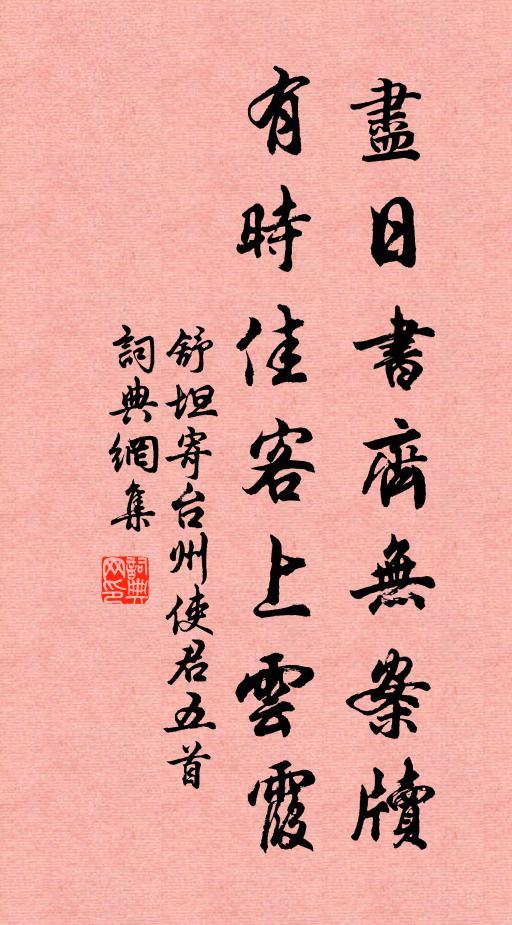 盡日書齊無案牘
有時佳客上雲霞
舒坦寄台州使君五首
詞典網集
詞典网印